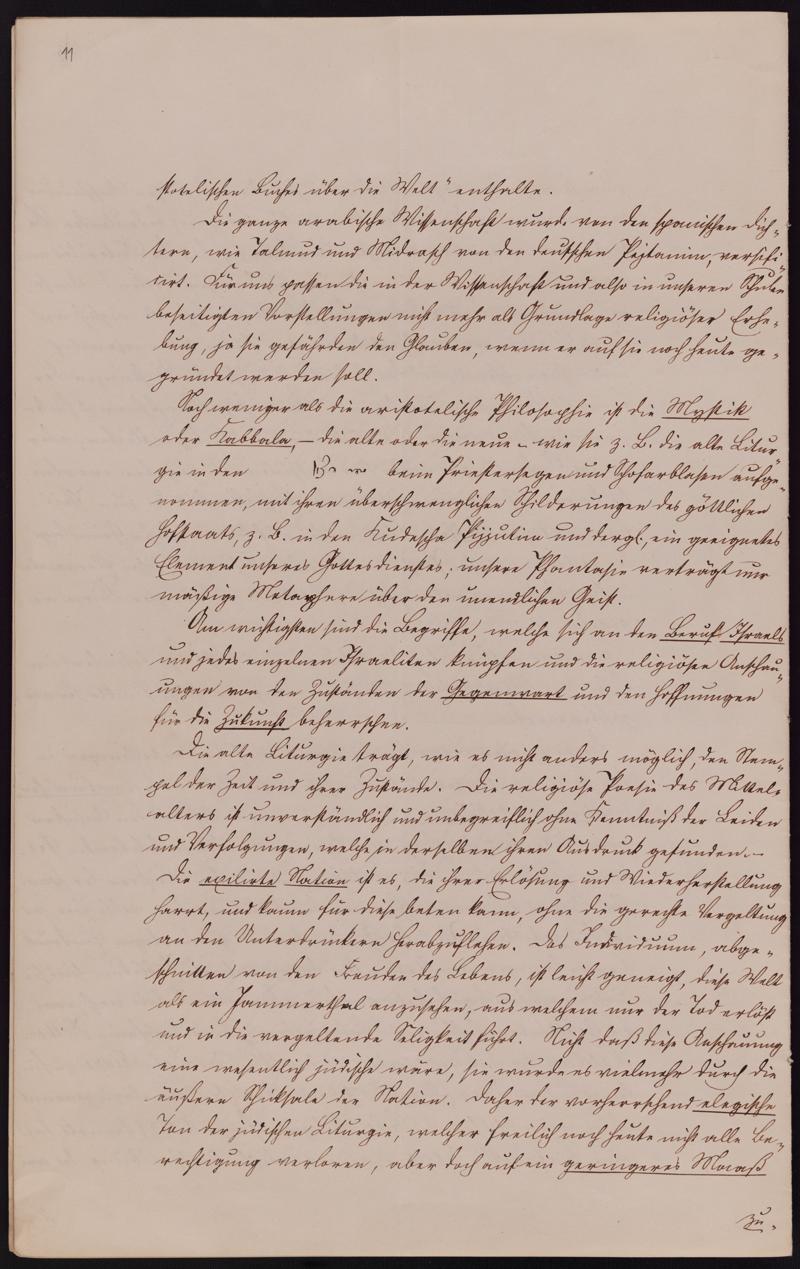 11
stotelischen Buches über die Welt" enthalte.
Die ganze arabische Wissenschaft wurde von den spanischen Dich-
tern, wie Talmud und Midrasch von den deutschen Pejtanim, versifi-
cirt. Für uns passen die in der Wissenschaft und also in unseren Schulen
beseitigten Vorstellungen nicht mehr als Grundlage religiöser Erhe-
bung, ja sie gefährden den Glauben, wenn er auf sie noch heute ge-
gründet werden soll.
Noch weniger als die aristotelische Philosophie ist die Mystik
oder Kabbala, – die alte oder die neue – wie sie z. B. die alte Litur-
gie in den beim Priestersegen und Schofarblasen aufge-
nommen, mit ihren überschwenglichen Schilderungen des göttlichen
Hofstaats, z. B. in den Kuduscha Pijjutim und dergl., ein geeignetes
Element unseres Gottesdienstes; unsere Phantasie verträgt nur
mäßige Metaphern über den unendlichen Geist.
Am wichtigsten sind die Begriffe, welche sich an den Beruf Israels
und jedes einzelnen Israeliten knüpfen und die religiösen Anschau-
ungen von den Zuständen der Gegenwart und den Hoffnungen
für die Zukunft beherrschen.
Die alte Liturgie trägt, wie es nicht anders möglich, den Stem-
pel der Zeit und ihrer Zustände. Die religiöse Poesie des Mittel-
alters ist unverständlich und unbegreiflich ohne Kenntniß der Leiden
und Verfolgungen, welche in derselben ihren Ausdruck gefunden. –
Die exilirte Nation ist es, die ihrer Erlösung und Wiederherstellung
harrt, und kaum für diese beten kann, ohne die gerechte Vergeltung
an den Unterdrückern herabzuflehen. Das Individuum, abge-
schnitten von den Freuden des Lebens, ist leicht geneigt, diese Welt
als ein Jammerthal anzusehen, aus welchem nur der Tod erlöst
und in die vergeltende Seligkeit führt. Nicht daß diese Anschauung
eine wesentlich jüdische wäre, sie wurde es vielmehr durch die
äußern Schicksale der Nation. Daher der vorherrschend elegische
Ton der jüdischen Liturgie, welcher freilich noch heute nicht alle Be-
rechtigung verloren, aber doch auf ein geringeres Maaß
zu-